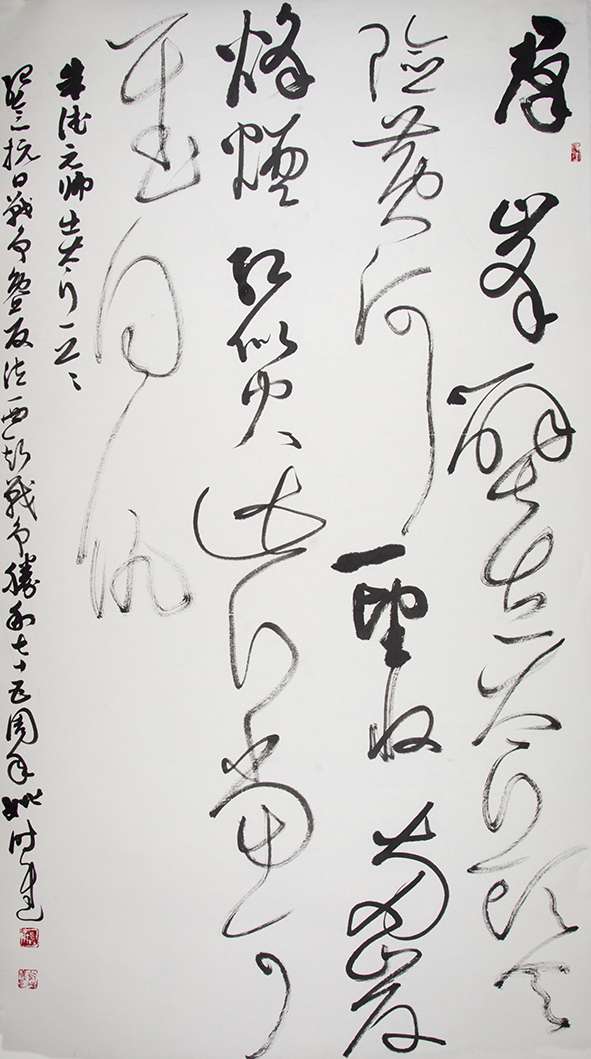 群峯壁立太行头天
險黄河一望收两岸
烽煙红似火此行当可
慰同仇
朱德元帅出太行
纪念抗日戰争暨反法西斯戰争勝利七十五周年 姚时